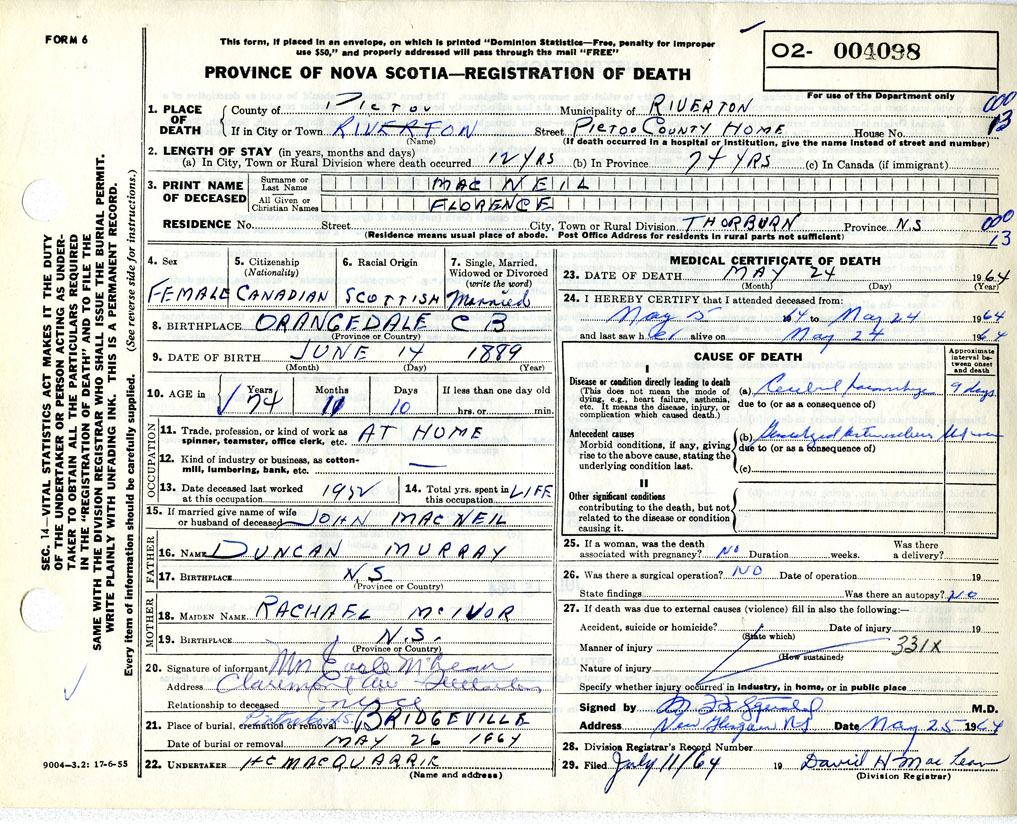 FORM 6
This form, if placed in an envelope, on which is printed "Dominion Statistics—Free, penalty for improper
use $50," and properly addressed will pass through the mail "FREE"
PROVINCE OF NOVA SCOTIA—REGISTRATION OF DEATH
O2- 004098
For use of the Department only
SEC. 14—VITAL STATISTICS ACT MAKES IT THE DUTY
OF THE UNDERTAKER OR PERSON ACTING AS UNDER-
TAKER TO OBTAIN ALL THE PARTICULARS REQUIRED
IN THE "REGISTRATION OF DEATH" AND TO FILE THE
SAME WITH THE DIVISION REGISTRAR WHO SHALL ISSUE THE BURIAL PERMIT.
WRITE PLAINLY WITH UNFADING INK. THIS IS A PERMANENT RECORD.
Every item of information should be carefully supplied. (See reverse side for instructions.)
1. PLACE OF DEATH
County of PICTOU Municipality of RIVERTON 000
If in City or Town RIVERTON Street PICTOO COUNTY HOME House No. 13
(Name) (If death occurred in a hospital or institution, give the name instead of street and number)
2. LENGTH OF STAY (in years, months and days)
(a) In City, Town or Rural Division where death occurred 12 YRS (b) In Province 74 YRS (c) In Canada (if immigrant)
3. PRINT NAME OF DECEASED
Surname or Last Name MAC NEIL
All Given or Christian Names FLORENCE
RESIDENCE No. Street City, Town or Rural Division THORBURN Province N.S. 000
(Residence means usual place of abode. Post Office Address for residents in rural parts not sufficient) 13
4. Sex 5. Citizenship (Nationality) 6. Racial Origin 7. Single, Married, Widowed or Divorced (write the word)
FEMALE CANADIAN SCOTTISH Married
8. BIRTHPLACE ORANGEDALE C B
(Province or Country)
9. DATE OF BIRTH JUNE 14 1889
(Month) (Day) (Year)
10. AGE in Years Months Days If less than one day old
74 11 10 hrs. or min.
OCCUPATION
11. Trade, profession, or kind of work as spinner, teamster, office clerk, etc. AT HOME
12. Kind of industry or business, as cotton-mill, lumbering, bank, etc. —
13. Date deceased last worked at this occupation 1952 14. Total yrs. spent in this occupation LIFE
15. If married give name of wife or husband of deceased JOHN MACNEIL
FATHER
16. NAME DUNCAN MURRAY
17. BIRTHPLACE N.S.
(Province or Country)
MOTHER
18. MAIDEN NAME RACHAEL MCIVOR
19. BIRTHPLACE N.S.
(Province or Country)
20. Signature of informant Mrs McLean
Address Claremont Ave
Relationship to deceased niece
21. Place of burial, cremation or removal BRIDGEVILLE
Date of burial or removal MAY 26 1964
22. UNDERTAKER HC MACQUARRIE
(Name and address)
9004—3.2: 17-6-55
MEDICAL CERTIFICATE OF DEATH
23. DATE OF DEATH MAY 24 1964
(Month) (Day) (Year)
24. I HEREBY CERTIFY that I attended deceased from:
May 5 64 to May 24 1964
and last saw her alive on May 24 1964
CAUSE OF DEATH
Approximate interval between onset and death
I
Disease or condition directly leading to death (a) Cerebral haemorrhage 9 days
(This does not mean the mode of dying, e.g., heart failure, asthenia, etc. It means the disease, injury, or complication which caused death.)
due to (or as a consequence of)
Antecedent causes (b) Generalized arteriosclerosis
Morbid conditions, if any, giving rise to the above cause, stating the underlying condition last.
due to (or as a consequence of)
(c)
II
Other significant conditions
contributing to the death, but not related to the disease or condition causing it.
25. If a woman, was the death associated with pregnancy? NO Duration weeks. Was there a delivery?
26. Was there a surgical operation? NO Date of operation 19
State findings Was there an autopsy? NO
27. If death was due to external causes (violence) fill in also the following:—
Accident, suicide or homicide? Date of injury 19
(State which)
Manner of injury 331X
(How sustained)
Nature of injury
Specify whether injury occurred in industry, in home, or in public place
Signed by M.D.
Address New Glasgow NS Date May 25 1964
28. Division Registrar's Record Number
29. Filed July 11/64 19 David H MacLean
(Division Registrar)